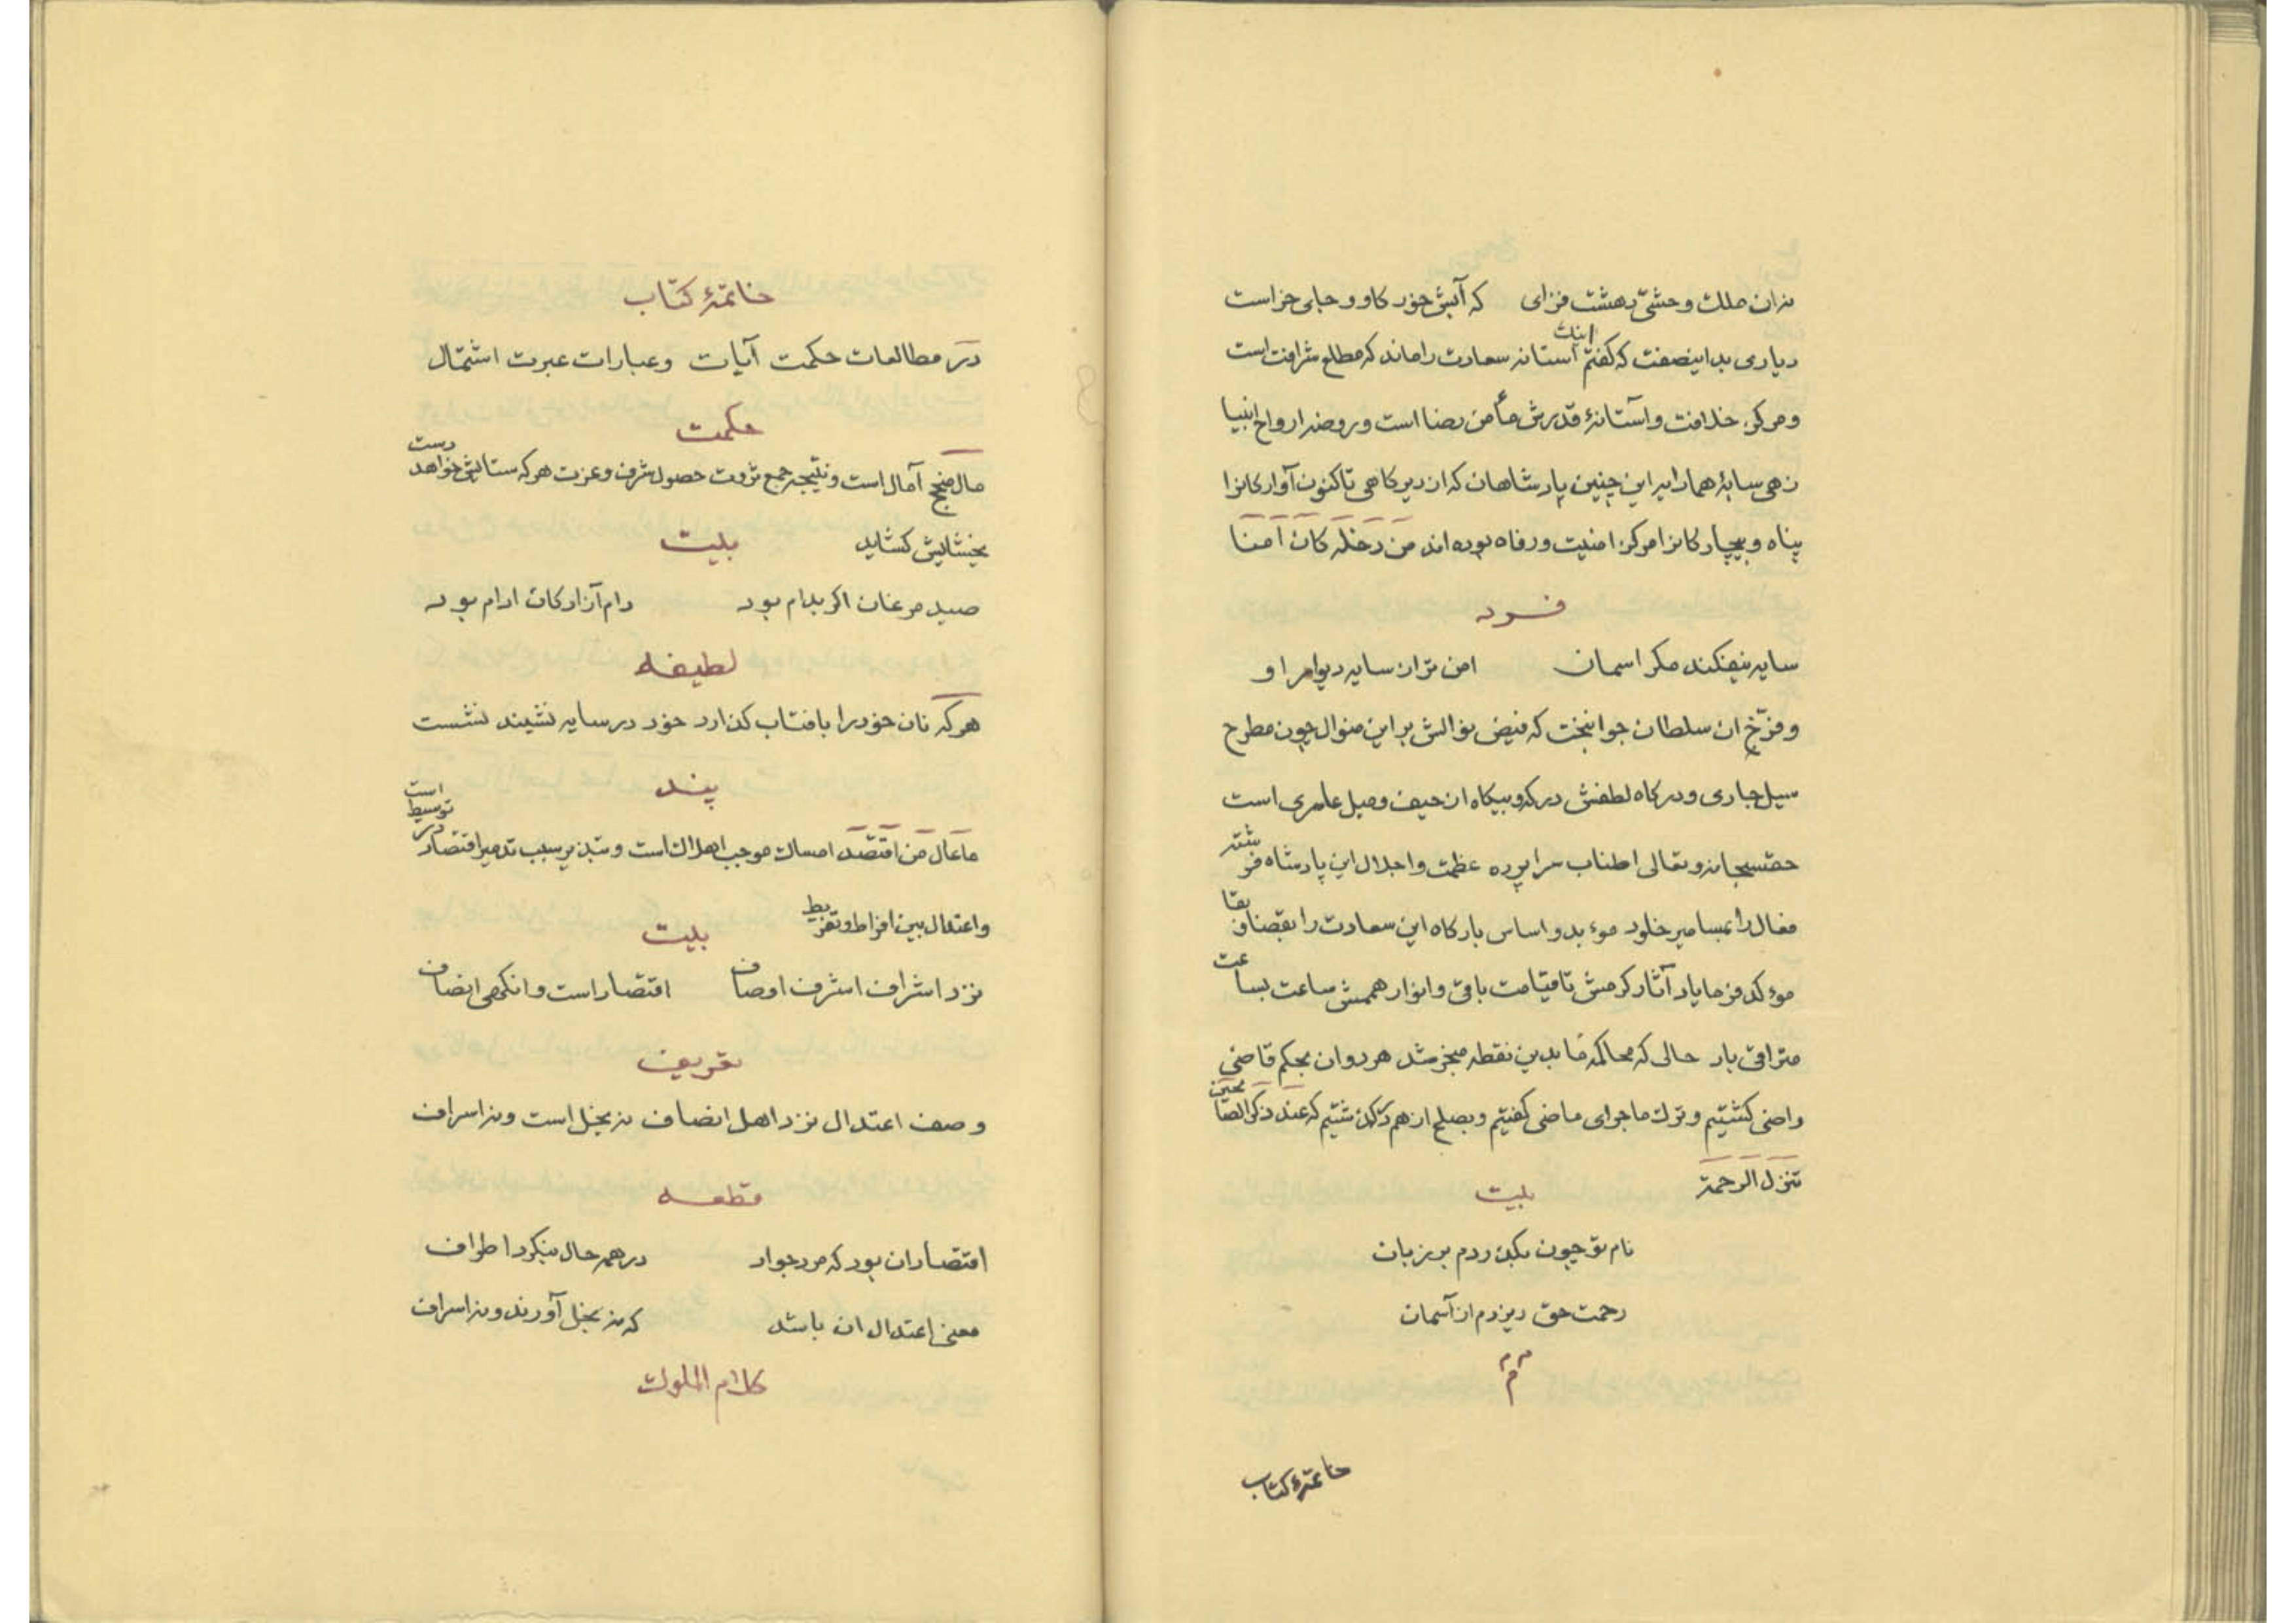 نه ان ملك وحشتى دهشت فزاى که آبش خور کاو و جاى خر است
ديارى بداينصفت که کفتم اينك آستانه سعادت را ماند که مطلع شرافت است
ومرکز خلافت وآستانۀ قدرش مأمن رضا است وروضه ارواح انبيا
زهى سايۀ هماپايه اين چنين پادشاهان که از ديرکاهى تاکنون آوارکانرا
پناه وبيچارکانرا مرکز امنيت ورفاه بوده اند من دخله کان آمنا
فرد
سايه نيفکند مکر اسمان امن تر از سايه ديوار او
وفرّخ ان سلطان جوانبخت که فيض نوالش براين منوال چون مطرح
سيل جارى ودرکاه لطفش درکه وبيکاه از حيف وميل عارى است
حقسبحانه وتعالى اطناب سراپرده عظمت واجلال اين پادشاه فرشته
فعال را بمسامير خلود موءبد واساس بارکاه اين سعادت را بقضاف بقا
موءکد فرماياد آثار کرمش تا قيامت باقى وانوار هممش ساعت بساعت
مترقى باد حالى که محاکمه ما بدين نقطه منجر شد هر دوان بحکم قاضى
راضى کشتيم وترك ماجراى ماضى کفتيم وبصلح ازهم درکذشتيم که عند ذکر الصالحين
تنزل الرحمة
بيت
نام تو چون بکذردم بر زبان
رحمت حق ريزدم از آسمان
م م م
خاتمۀ کتاب
خاتمۀ کتاب
در مطالعات حکمت آيات وعبارات عبرت اشتمال
حکمت
مال منتج آمال است ونتيجه جمع ثروت حصول شرف وعزت هرکه ستايش خواهد دست
بخشايش کشايد
بيت
صيد مرغان اکر بدام بود دام آزادکان ادام بود
لطيفه
هرکه نان خودرا بافتاب کذارد خود در سايه نشيند نشست
پند
ما عال من اقتصد امساك موجب اهلاك است وتبذير سبب تدمير اقتصاد در توسيط است
واعتدال بين افراط وتفريط
بيت
نزد اشراف اشرف اوصاف اقتصاد است وانکهى انصاف
تعريف
وصف اعتدال نزد اهل انصاف نه بخل است ونه اسراف
قطعه
اقتصاد ان بود که مرد جواد در همه حال بنکرد اطراف
معنى اعتدال ان باشد که نه بخل آورند ونه اسراف
کلام الملوك